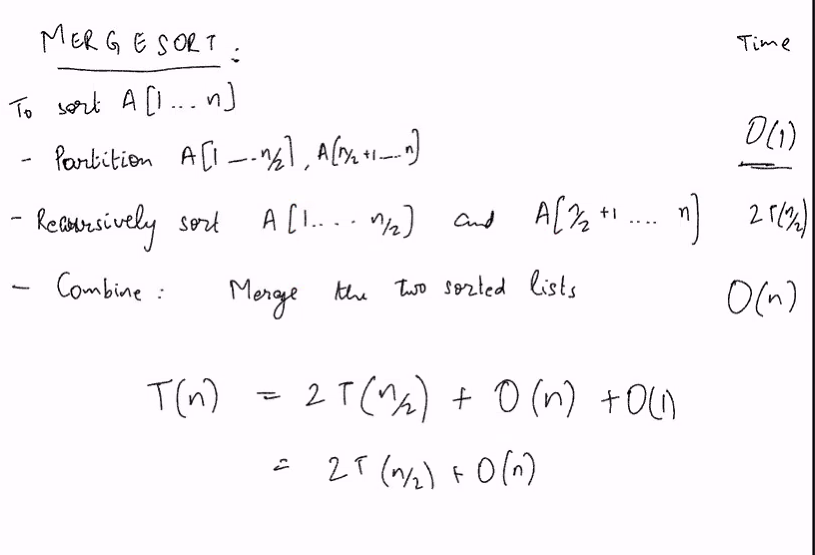 MERGESORT : Time
To sort A[1 ... n]
- Partition A[1 --- n/2], A[n/2 +1 --- n] O(1)
- Recursively sort A[1 .... n/2] and A[n/2 +1 .... n] 2T(n/2)
- Combine : Merge the two sorted lists O(n)
T(n) = 2T(n/2) + O(n) + O(1)
= 2T(n/2) + O(n)